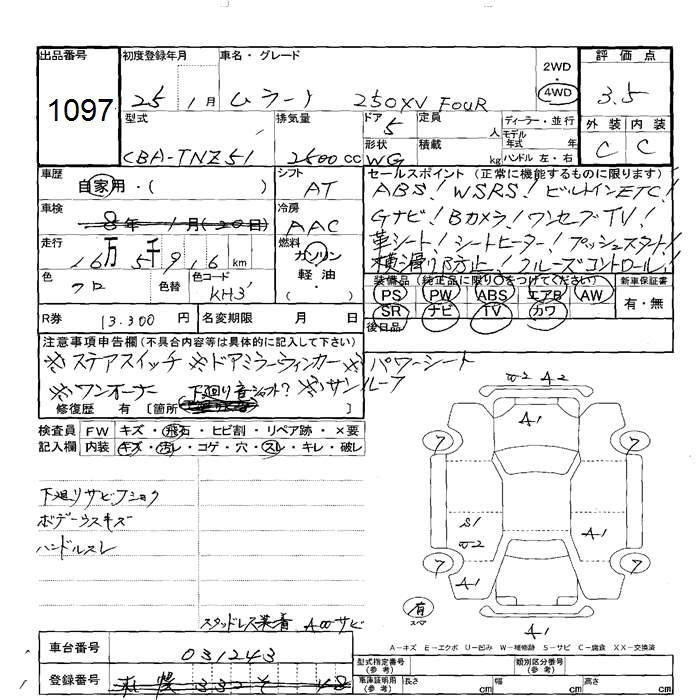 出品番号 初度登録年月 車名・グレード 2WD 評価点
1097 25 1月 ムラーノ 250XV FOUR 4WD 3.5
型式 排気量 ドア 5 定員 人 ディーラー・並行 外装 内装
CBA-TNZ51 2500cc 形状 WG 積載 kg モデル年式 年 ハンドル 左・右 C C
車歴 自家用・( ) シフト AT セールスポイント (正常に機能するものに限ります)
ABS! WSRS! ビルトインETC!
車検 8年 1月(20日) 冷房 AAC Gナビ! Bカメラ! ワンセグTV!
走行 16万5千916km 燃料 ガソリン 軽油 ( ) 革シート! シートヒーター! プッシュスタート!
横滑り防止! クルーズコントロール!
色 クロ 色替 色コード KH3
装備品 (純正品に限り○をつけてください) 新車保証書
PS PW ABS エアB AW 有・無
SR ナビ TV カワ
後日品
R券 13.300円 名変期限 月 日
注意事項申告欄 (不具合内容等は具体的に記入して下さい)
※ステアスイッチ ※ドアミラーウィンカー ※パワーシート
※ワンオーナー 下廻り ※サンルーフ
修復歴 有 [箇所 ]
検査員 FW キズ・飛石・ヒビ割・リペア跡・×要
記入欄 内装 キズ・汚レ・コゲ・穴・スレ・キレ・破レ
下廻リサビフショク
ボデーウスキズ
ハンドルスレ
スタッドレス装着 Aワサビ
W2 A2
A1
7 7
S1
W2 A1
7 7
A1
有
スペア
A1
A-キズ E-エクボ U-凹み W-補修跡 S-サビ C-腐食 XX-交換済
車台番号 031243
型式指定番号 (参考) 類別区分番号 (参考)
登録番号
車庫証明用 (参考) 長さ cm 幅 cm 高さ cm